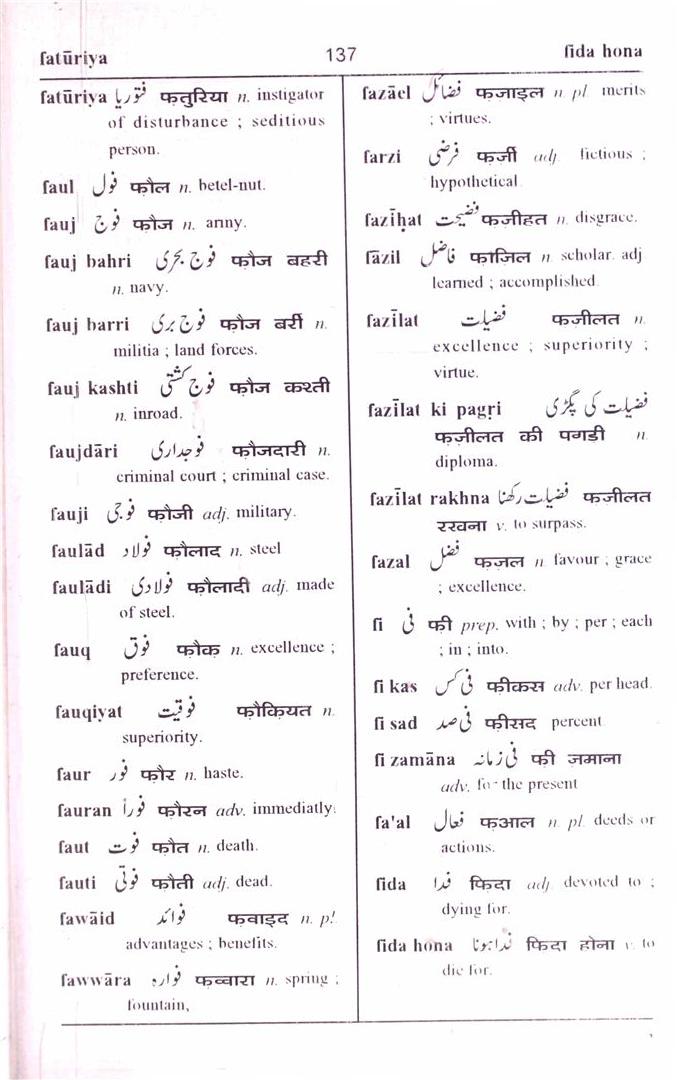 fatūriya 137 fida hona
fatūriya فتوریا फ़तुरिया n. instigator
of disturbance ; seditious
person.
faul فول फ़ौल n. betel-nut.
fauj فوج फ़ौज n. army.
fauj bahri فوج بحری फ़ौज बहरी
n. navy.
fauj barri فوج بری फ़ौज बर्री n.
militia ; land forces.
fauj kashti فوج کشتی फ़ौज कश्ती
n. inroad.
faujdāri فوجداری फ़ौजदारी n.
criminal court ; criminal case.
fauji فوجی फ़ौजी adj. military.
faulād فولاد फ़ौलाद n. steel
faulādi فولادی फ़ौलादी adj. made
of steel.
fauq فوق फ़ौक़ n. excellence ;
preference.
fauqiyat فوقیت फ़ौक़ियत n.
superiority.
faur فور फ़ौर n. haste.
fauran فوراً फ़ौरन adv. immediatly.
faut فوت फ़ौत n. death.
fauti فوتی फ़ौती adj. dead.
fawāid فوائد फ़वाइद n. pl.
advantages ; benefits.
fawwāra فوارہ फ़व्वारा n. spring ;
fountain,
fazāel فضائل फ़जाइल n pl merits
; virtues.
farzi فرضی फ़र्जी adj. fictious ;
hypothetical
faziḥat فضیحت फ़ज़ीहत n. disgrace.
fāzil فاضل फ़ाजिल n. scholar. adj
learned ; accomplished.
fazīlat فضیلت फ़ज़ीलत n.
excellence ; superiority ;
virtue.
fazīlat ki pagṛi فضیلت کی پگڑی
फ़ज़ीलत की पगडी n.
diploma.
fazīlat rakhna فضیلت رکھنا फ़ज़ीलत
रखना v. to surpass.
fazal فضل फ़ज़ल n. favour ; grace
; excellence.
fi فی फ़ी prep. with ; by ; per ; each
; in ; into.
fi kas فی کس फ़ीकस adv. per head.
fi sad فی صد फ़ीसद percent
fi zamāna فی زمانہ फ़ी ज़माना
adv. for the present
fa'al فعال फ़आल n. pl. deeds or
actions.
fida فدا फ़िदा adj. devoted to ;
dying for.
fida hona فدا ہونا फ़िदा होना v. to
die for.